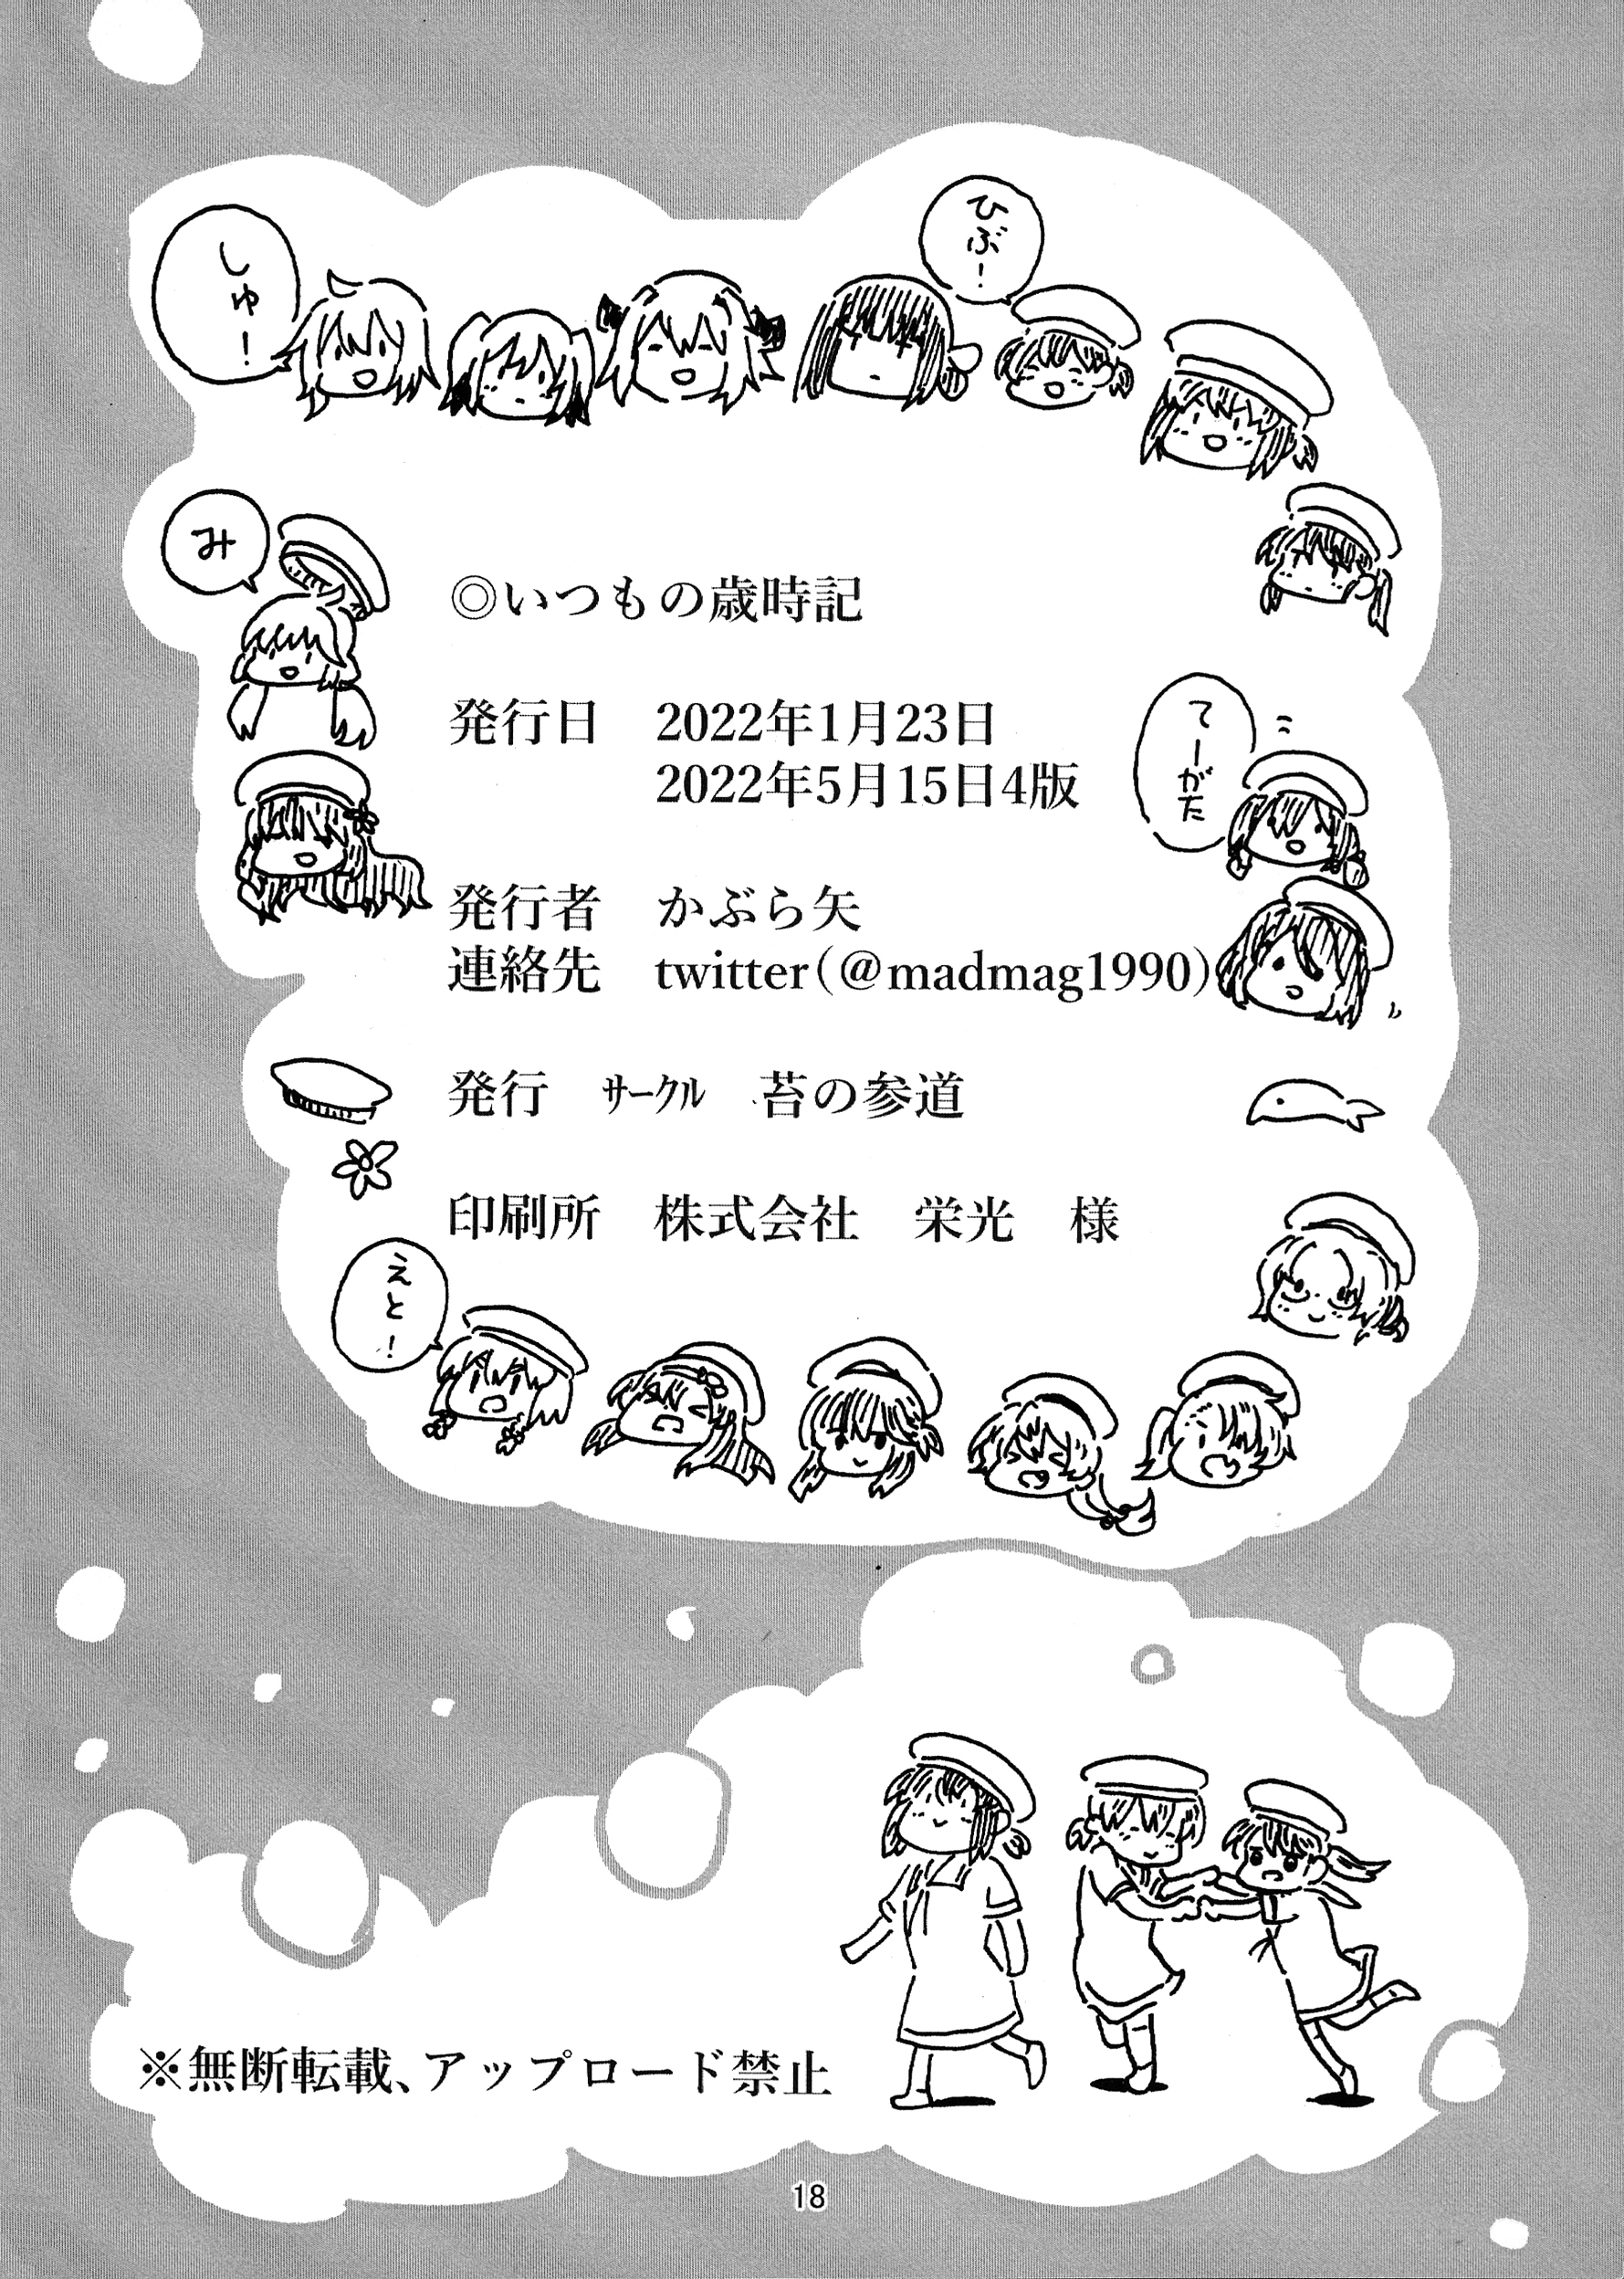 しゅ!
ひぶ!
み
◎いつもの歳時記
発行日　2022年1月23日
2022年5月15日4版
てーがた
発行者　かぶら矢
連絡先　twitter(@madmag1990)
発行　サークル　苔の参道
印刷所　株式会社　栄光　様
えと!
※無断転載、アップロード禁止
18